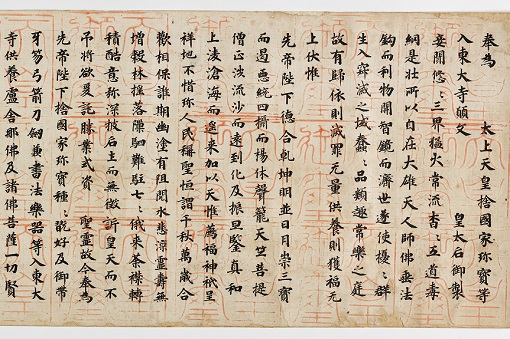 奉為　太上天皇捨國家珎寶等
入東大寺願文　皇太后御製
妾聞悠々三界猛火常流杳々五道毒
網是壯所以自在大雄天人師佛垂法
鈎而利物開智鏡而濟世遂使擾々群
生入寂滅之域蠢々品類趣常樂之庭
故有歸依則滅罪无量供養則獲福无
上伏惟
先帝陛下德合乾坤明並日月崇三寶
而遏惡統四攝而揚休聲籠天竺菩提
僧正涉流沙而遠到化及振旦鑒真和
上凌滄海而遙來加以天惟薦福神祇呈
祥地不惜珎人民稱聖恒謂千秋萬歲合
歡相保誰期幽塗有阻閱水悲涼靈壽無
增穀林搖落隙駟難駐七々俄來荼襟轉
積酷意弥深披后土而無徵訴皇天而不
弔將欲爰託勝業式資　聖靈故今奉為
先帝陛下捨國家珎寶種々翫好及御帶
牙笏弓箭刀劔兼書法樂器等入東大
寺供養盧舍那佛及諸佛菩薩一切賢